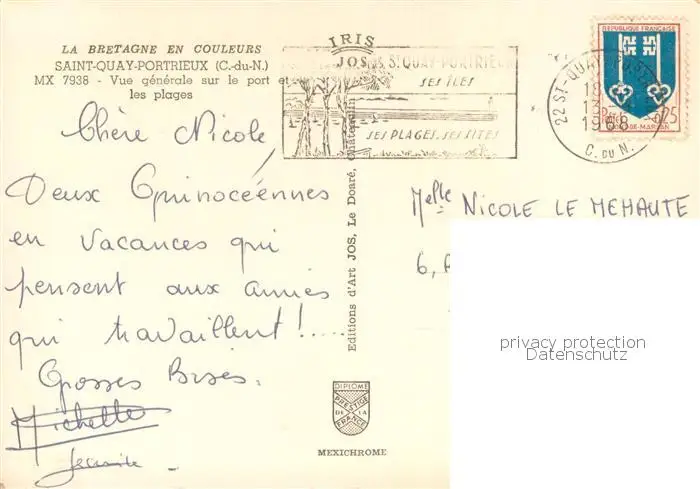 LA BRETAGNE EN COULEURS
SAINT-QUAY-PORTRIEUX (C.-du-N.)
MX 7938 - Vue générale sur le port et
les plages
IRIS
JOS
St QUAY-PORTRIEUX
SES ÎLES
SES PLAGES, SES SITES
22 ST-QUAY-
18
13-
1966
C. DU N.
REPUBLIQUE FRANÇAISE
0,25
MONT-DE-MARSAN
Chère Nicole,
Deux Quinocéennes
en vacances qui
pensent aux amies
qui travaillent!.....
Grosses Bises.
Michelle
Editions d'Art JOS, Le Doaré, Châteaulin
Melle NICOLE LE MEHAUTE
6,
privacy protection
Datenschutz
DIPLOME
PRESTIGE
DE LA
FRANCE
MEXICHROME